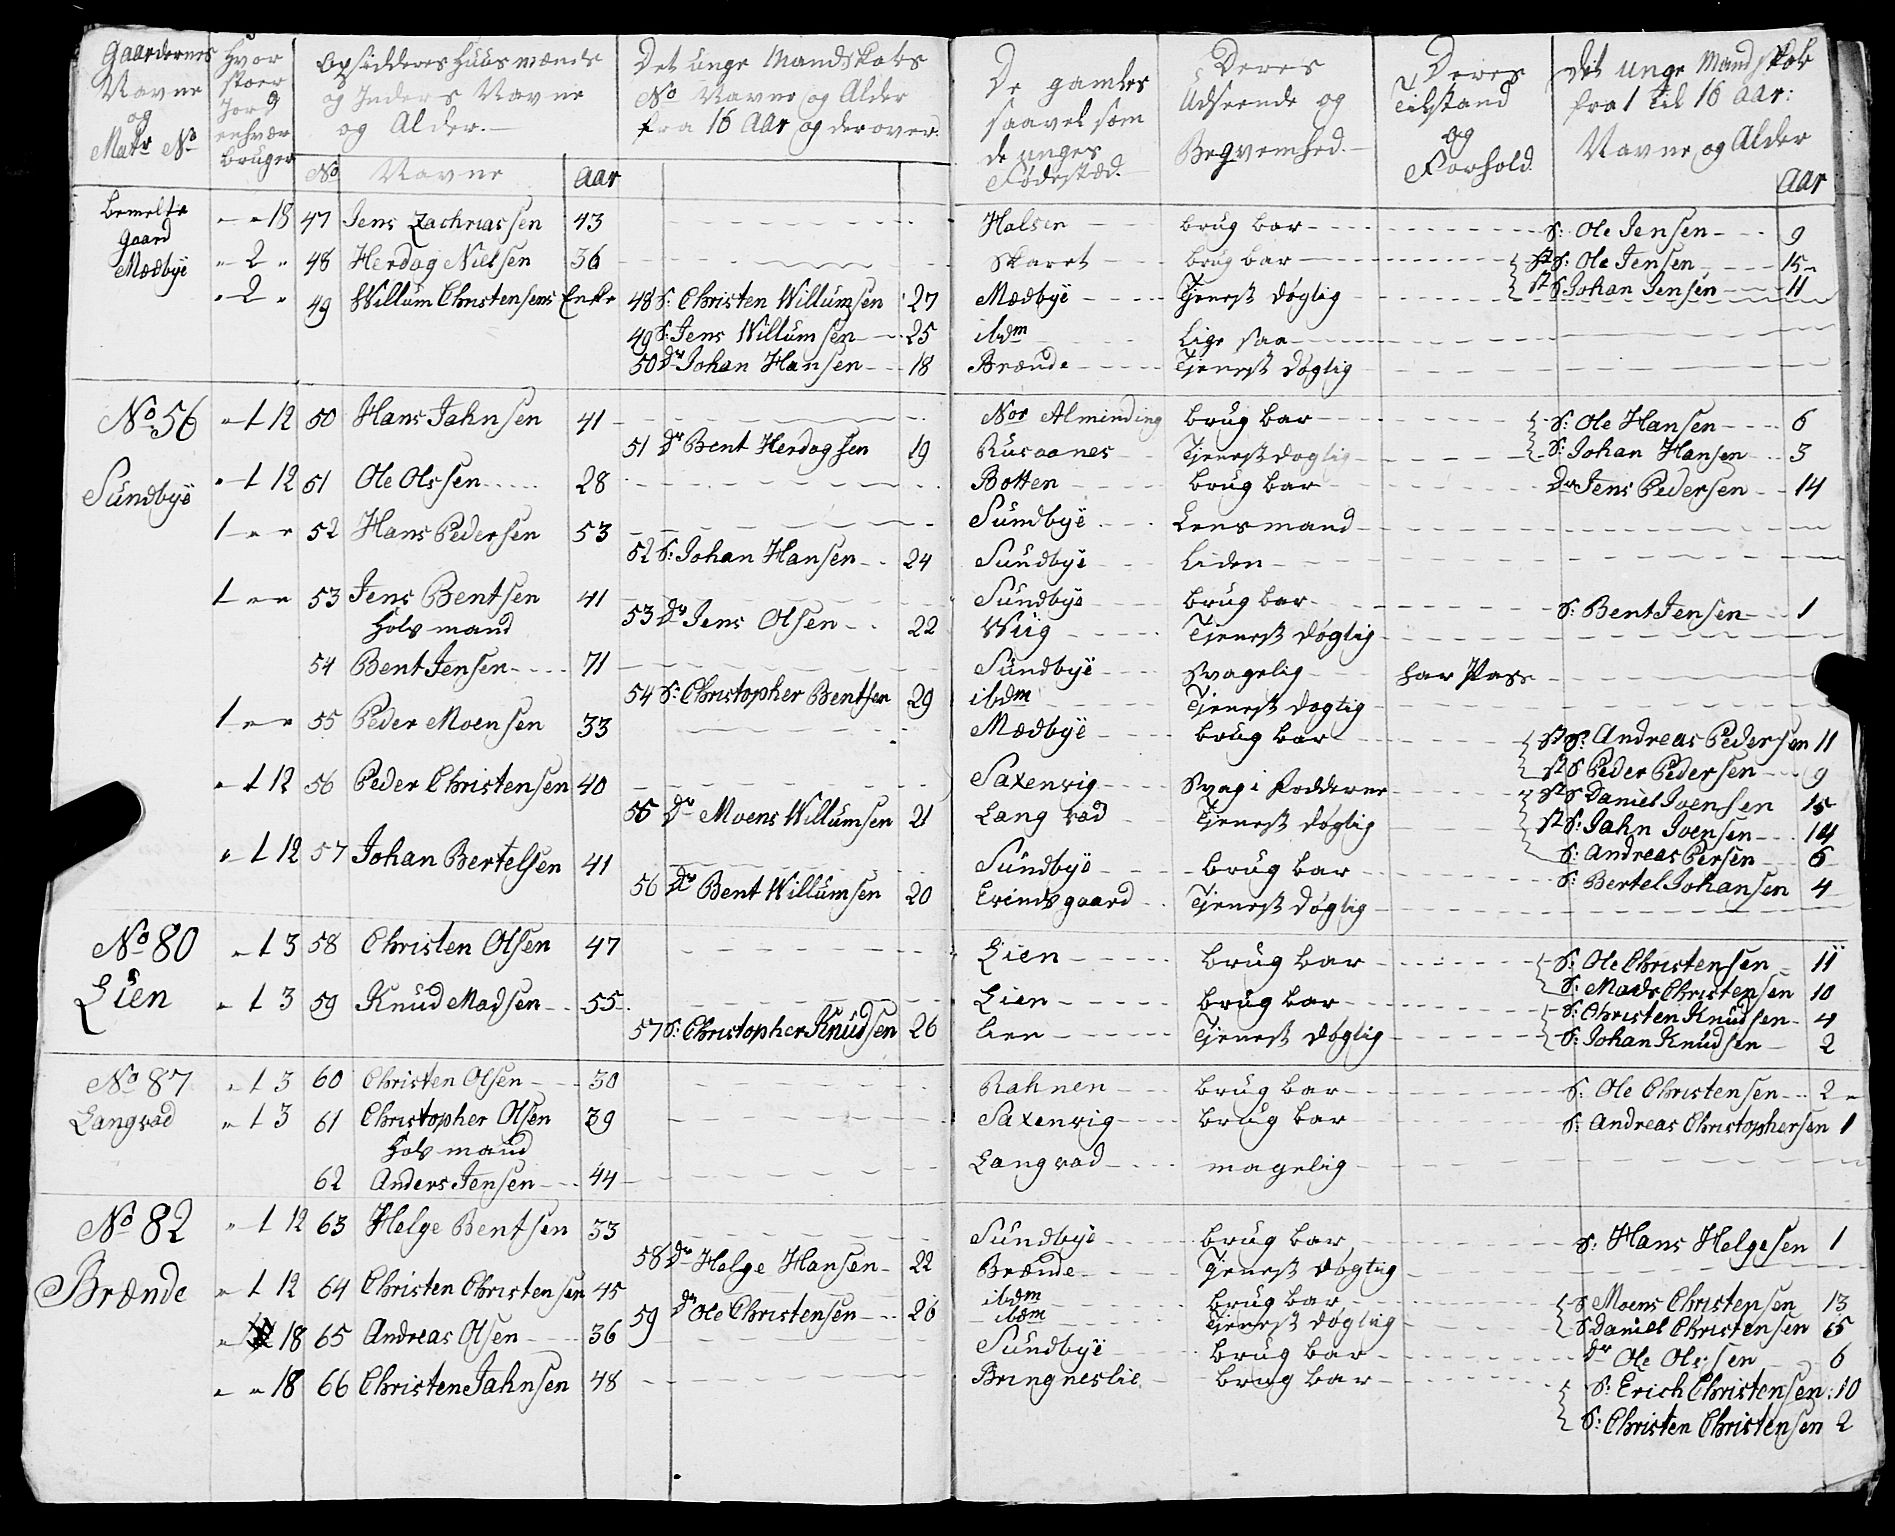 Gaardernes Navne og Matr No | Hvor stoer Jord enhvær bruger | Opsidderes Huusmænds og Inders Navne og Alder.— | Det unge Mandskabs No Navne og Alder fra 16 Aar og derover. | De gamles saavel som de unges Fødestæd.— | Deres Udseende og Beqvemhed.— | Deres Tilstand og Forhold | Det unge Mandskab fra 1 til 16 Aar: Navne og Alder
No | Navne | Aar | Aar
bemelte gaard Mædbye | " " 18 | 47 | Jens Zachriassen | 43 | Halsen | brug bar | S: Ole Jensen | 9
" 2 " | 48 | Herdog Nielsen | 36 | Skaret | brug bar | St S: Ole Jensen | 15
" 2 " | 49 | Willum Christensens Enke | 48 | S: Christen Willumsen | 27 | Mædbye | Tjenest døglig | St S. Johan Jensen | 11
49 | S: Jens Willumsen | 25 | ibdm | Lige saa
50 | Dr Johan Hansen | 18 | Brænde | Tjenest døglig
No 56 | " 1 12 | 50 | Hans Jahnsen | 41 | Nor Alminding | brug bar | S: Ole Hansen | 6
51 | Dr Bent Herdogsen | 19 | Rusaanes | Tjenest døglig | S: Johan Hansen | 3
Sundbye | " 1 12 | 51 | Ole Olssen | 28 | Botten | brug bar | Dr Jens Pedersen | 14
1 " " | 52 | Hans Pedersen | 53 | Sundbye | Lensmand
52 | S: Johan Hansen | 24 | Sundbye | Liden
1 " " | 53 | Jens Bentsen | 41 | Sundbye | brug bar | S: Bent Jensen | 1
Holv mand | 53 | Dr Jens Olsen | 22 | Wiig | Tjenest døglig
54 | Bent Jensen | 71 | Sundbye | svagelig | har Pass
54 | S: Christopher Bentsen | 29 | ibdm | Tjenest døgtig
1 " " | 55 | Peder Moensen | 33 | Mædbye | brug bar | St S: Andreas Pedersen | 11
St S Peder Pedersen | 9
" 1 12 | 56 | Peder Christensen | 40 | Saxenvig | Svag i Fødderne | St S Daniel Ivensen | 15
55 | Dr Moens Willumsen | 21 | Lang vad | Tjenest døglig | St S: Jahn Ivensen | 14
S: Andreas Persen | 6
" 1 12 | 57 | Johan Bertelsen | 41 | Sundbye | brug bar | S: Bertel Johansen | 4
56 | Dr Bent Willumsen | 20 | Evindsgaard | Tjenest døglig
No 80 | " 1 3 | 58 | Christen Olsen | 47 | Lien | brug bar | S: Ole Christensen | 11
S: Mads Christensen | 10
Lien | " 1 3 | 59 | Knud Madsen | 55 | Lien | brug bar | S: Christen Knudsen | 4
57 | S: Christopher Knudsen | 26 | Lien | Tjenest døglig | S: Johan Knudsen | 2
No 87 | " 1 3 | 60 | Christen Olsen | 30 | Rahnen | brug bar | S: Ole Christensen | 2
Langvad | " 1 3 | 61 | Christopher Olsen | 39 | Saxenvig | brug bar | S: Andreas Christophersen | 1
Holv mand
62 | Anders Jensen | 44 | Langvad | magelig
No 82 | " 1 12 | 63 | Helge Bentsen | 33 | Sundbye | brug bar | S: Hans Helgesen | 1
58 | Dr Helge Hansen | 22 | Brænde | Tjenest døgtig
Brænde | " 1 12 | 64 | Christen Christensen | 45 | ibdm | brug bar | S Moens Christensen | 13
59 | Dr Ole Christensen | 26 | ibdm | Tjenest døglig | S Daniel Christensen
" 18 | 65 | Andreas Olsen | 36 | Sundbye | brug bar | Dr Ole Olssen | 6
" " 18 | 66 | Christen Jahnsen | 48 | Bringneslie | brug bar | S: Erich Christensen | 10
S: Christen Christensen | 2